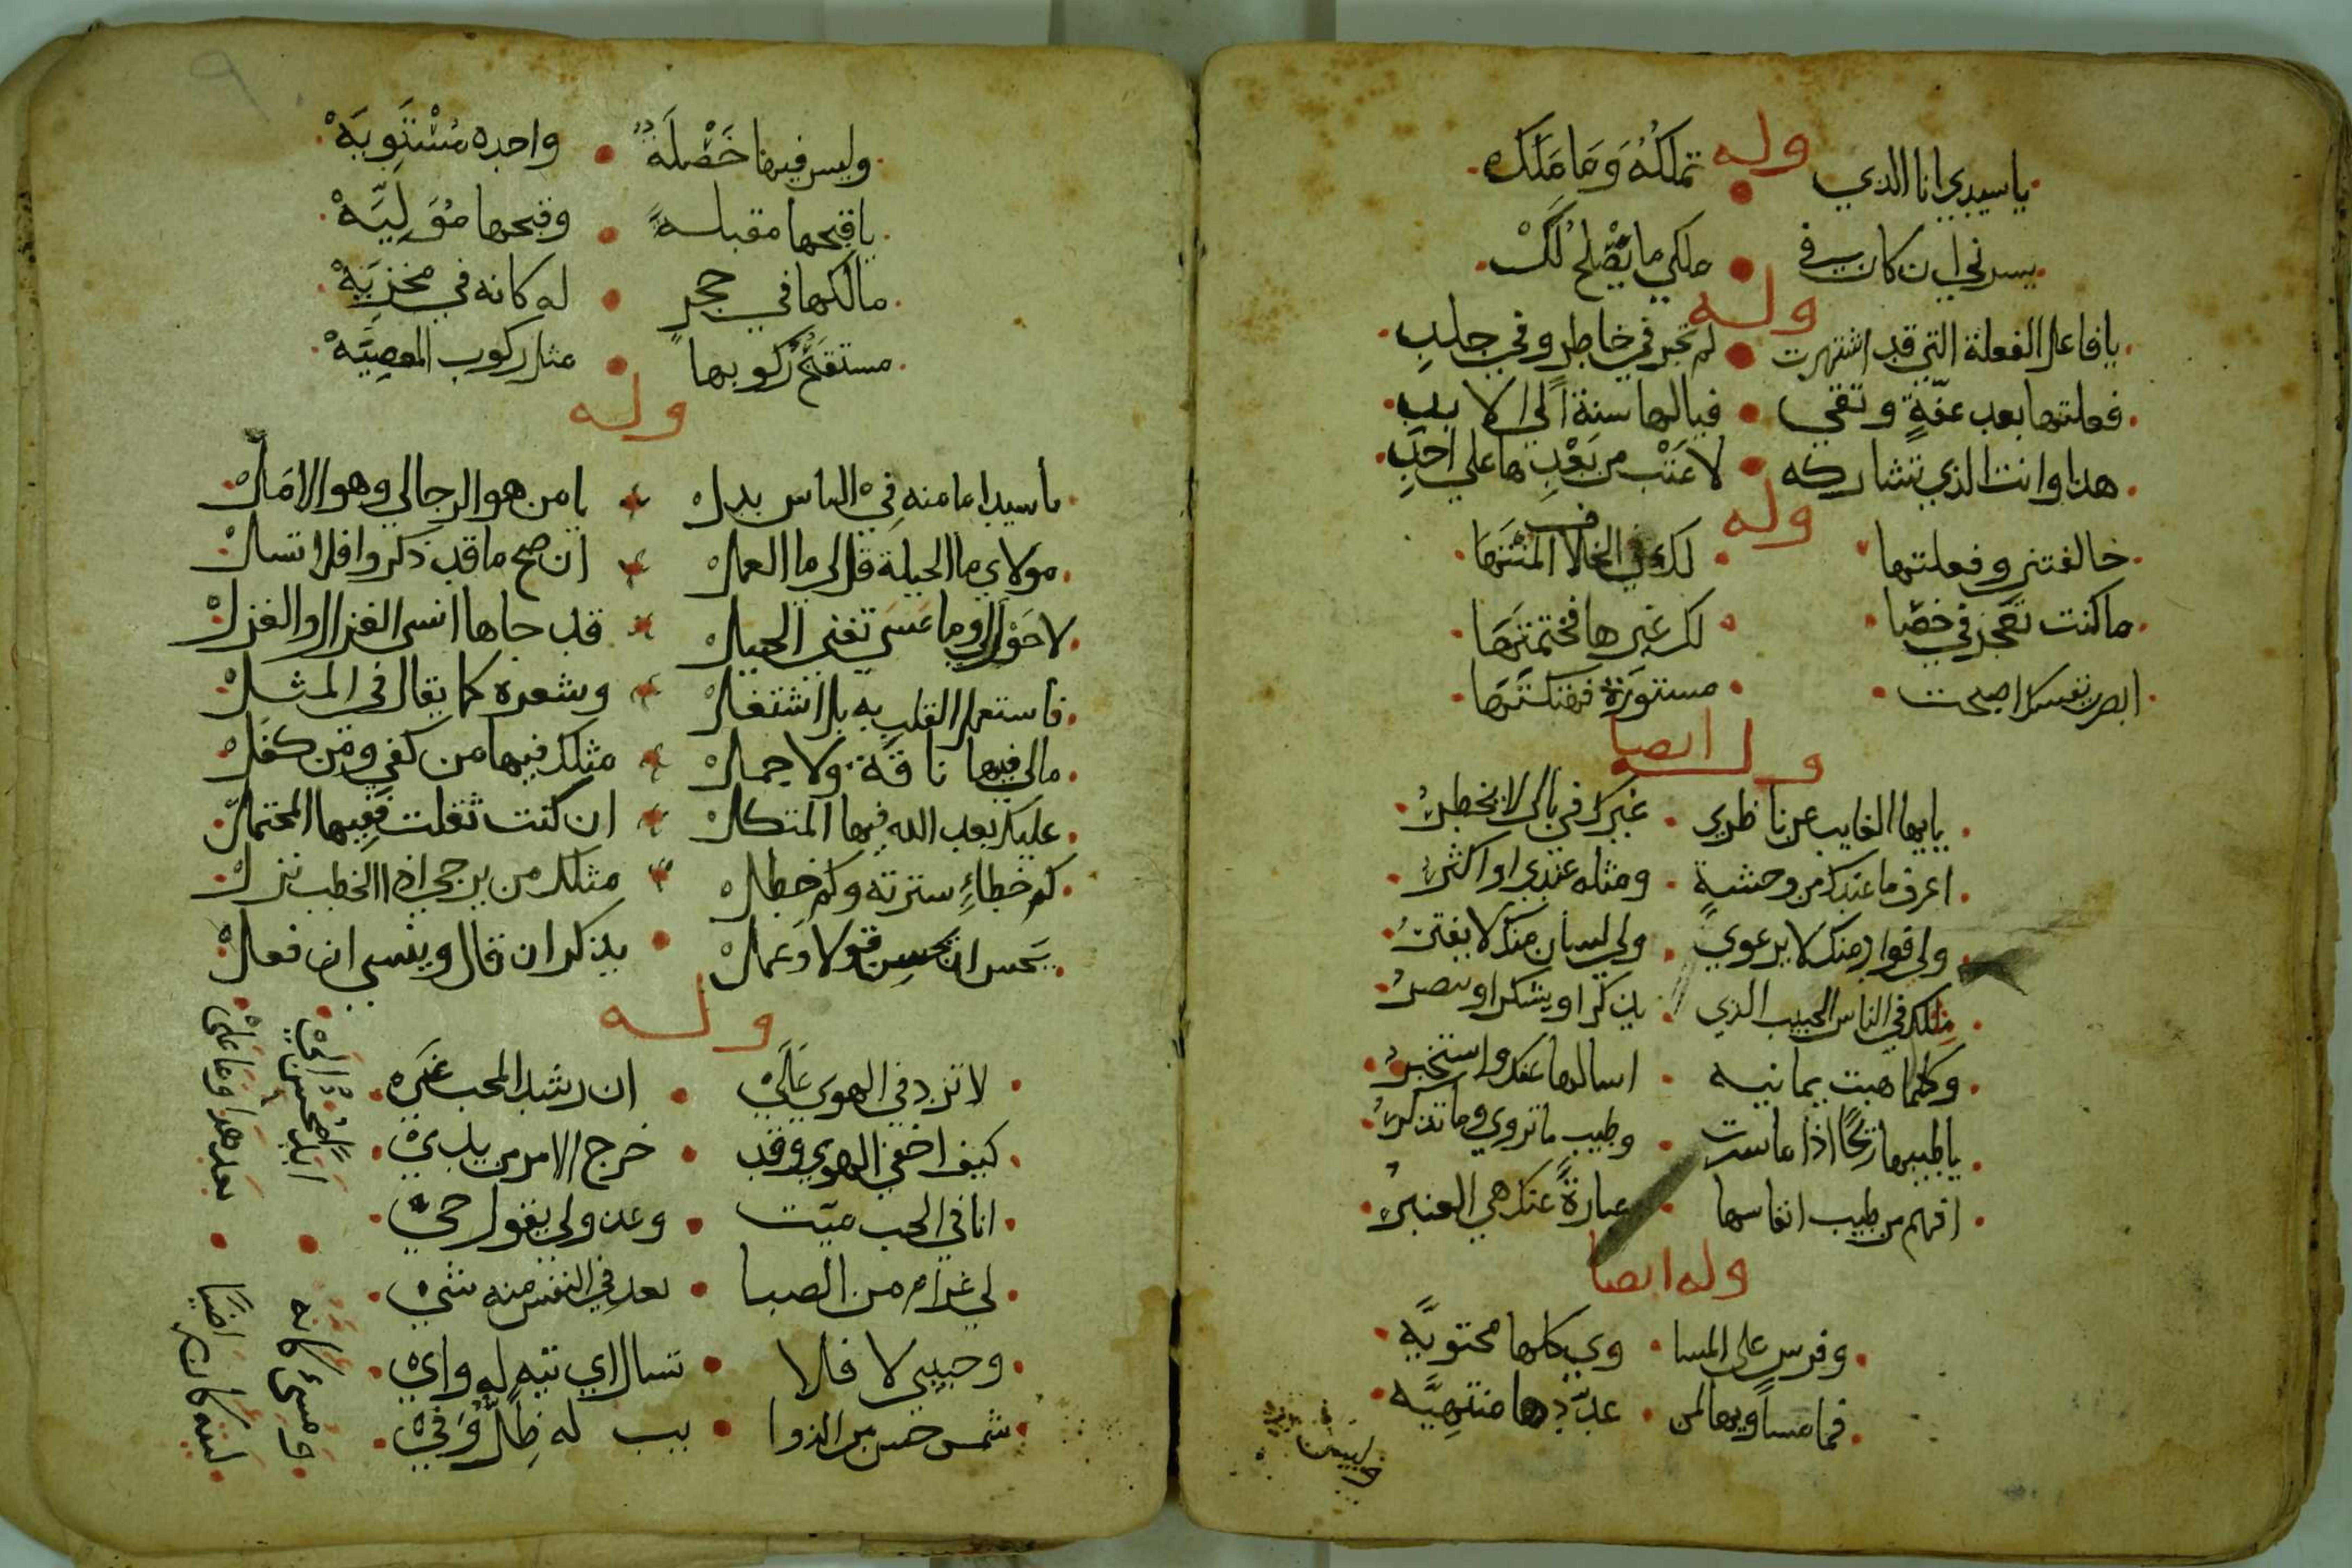 وله
يا سيدي انا الذي تملكه وما ملك
يسرني ان كان في ملكي ما يصلح لك
وله
يا فاعل الفعلة التي قد اشتهرت لم تجر في خاطر وفي خلد
فعلتها بعد عفة وتقي فيالها سنة الي الابد
هذا وانت الذي تشاركه لا عتب من بعدها علي احد
وله
خالفتني وفعلتها لك في الخلا المنتها
ما كنت تعجز في خصا لك غيرها فختمتها
ابصر بنفسك اصبحت مستورة فهتكتها
وله ايضا
يايها الغايب عن ناظري غيرك في بالي لا يخطر
اعرف ما عندك من وحشة ومثله عندي او اكثر
ولي فواد منك لا يرعوي ولي لسان منك لا يفتر
مثلك في الناس الحبيب الذي يذكر او يشكر او ينصر
وكلما هبت يمانيه اسالها عنك واستخبر
يا طيبها ريحًا اذا ما سرت وطيب ما تروي وما تذكر
افهم من طيب انفاسها عبارة عنك هي العنبر
وله ايضا
وفرس علي المسا وي كلها محتويه
فما مساويها لمن عددها منتهيه
وليس
وليس فيها خصلة واحده مستويه
يا قبحها مقبلة وقبحها موليه
مالكها في حجر له كانه في مخزيه
مستقبح ركوبها مثل ركوب المعصيه
وله
يا سيدا ما منه في الناس بدل يا من هو الرجا لي وهو الامل
مولاي ما الحيلة قل لي ما العمل ان صح ما قد ذكروا فلا تسل
لا حول لي وما عسي تغني الحيل قد جاها انسي الغزال والغزل
فاستعمل القلب به بل اشتغل وشعره كما يقال في المثل
ما لي فيها ناقة ولا جمل مثلك فيها من كفي ومن كفل
عليك بعد الله فيها المتكل ان كنت ثقلت ففيها المحتمل
كم خطاء سترته وكم خطل مثلك من يرجي اذا الخطب نزل
يحسن ان يحسن قولا وعمل يذكر ان قال وينسي ان فعل
وله
لا تزد في الهوي علي ان رشد المحب غي
كيف اخفي الهوي وقد خرج الامر من يدي
انا في الحب ميت وعذولي يقول حي
لي غرام من الصبا بعد في النفس منه شي
وحبيبي لا فلا تسال اي تيه له واي
شمس حسن من الذوا يب له ظل وفي
ابدا محسن الي ومسي كانه
بعد هذا وما علي ليته كان راضيا